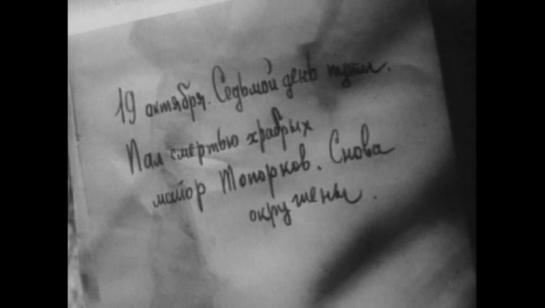 19 октября. Седьмой день пути.
Пал смертью храбрых
майор Топорков. Снова
окружены.